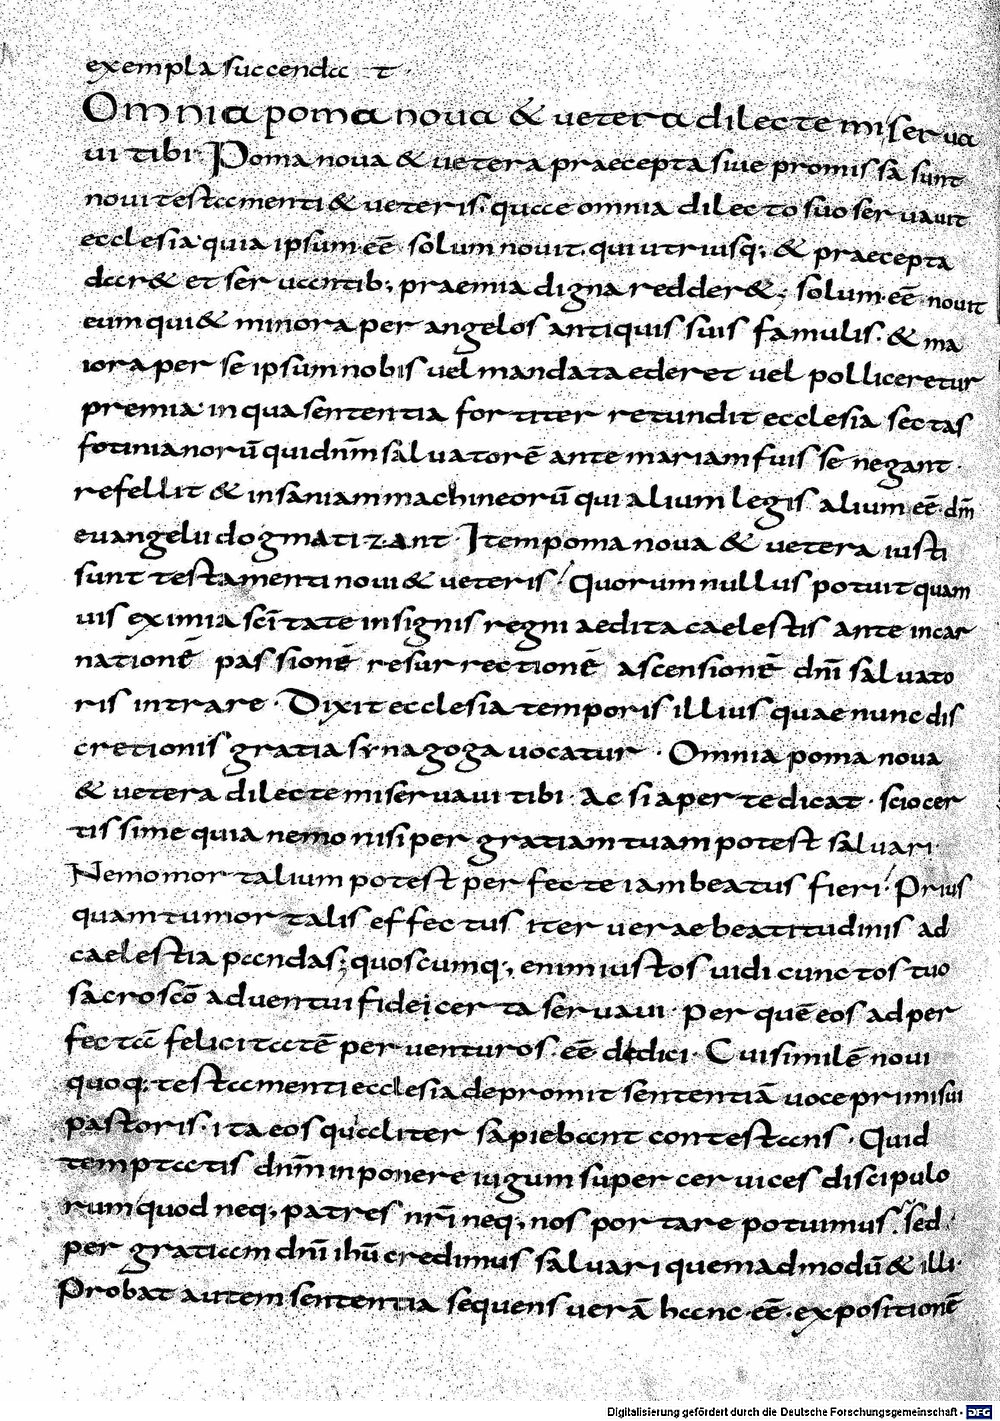 exempla succendat
Omnia poma noua & uetera dilecte mi serua
ui tibi· Poma noua & uetera praecepta siue promissa sunt
noui testamenti & ueteris· quae omnia dilecto suo seruauit
ecclesia· quia ipsum·eē· solum nouit· qui utriusq; & praecepta
dar& et seruantib; praemia digna redder&; solum·eē·nouit
eum qui & minora per angelos antiquis suis famulis· & ma
iora per se ipsum nobis uel mandata ederet uel polliceretur
premia· in qua sententia fortiter retundit ecclesia sectas
fotinianorū qui dnm̄ saluatorē ante mariam fuisse negant·
refellit & insaniam machineorū qui alium legis alium·eē·dm̄
euangelii dogmatizant· Item poma noua & uetera iusti
sunt testamenti noui & ueteris· Quorum nullus potuit quam
uis eximia sci̅tate insignis regni aedita caelestis ante incar
nationē passionē resurrectionē ascensionē dn̄i saluato
ris intrare· Dixit ecclesia temporis illius quae nunc dis
cretionis gratia synagoga uocatur· Omnia poma noua
& uetera dilecte mi seruaui tibi· Ac si aperte dicat· scio cer
tissime quia nemo nisi per gratiam tuam potest saluari·
Nemo mortalium potest perfecte iam beatus fieri· Prius
quam tu mortalis effectus iter uerae beatitudinis ad
caelestia pandas; quoscumq; enim iustos uidi cunctos tuo
sacroscō aduentui fidei certa seruaui· Per quē eos ad per
fecta felicitatē peruenturos·eē·dedici· Cui similē noui
quoq; testamenti ecclesia depromit sententiā uoce primi sui
pastoris· ita eos qualiter sapiebant contestans· Quid
temptatis dnm̄ inponere iugum super ceruices discipulo
rum quod neq; patres nr̄i neq; nos portare potuimus· sed·
per gratiam dn̄i ihū credimus saluari quemadmodū & illi·
Probat autem sententia sequens uerā hanc·eē·expositionē
Digitalisierung gefördert durch die Deutsche Forschungsgemeinschaft - DFG